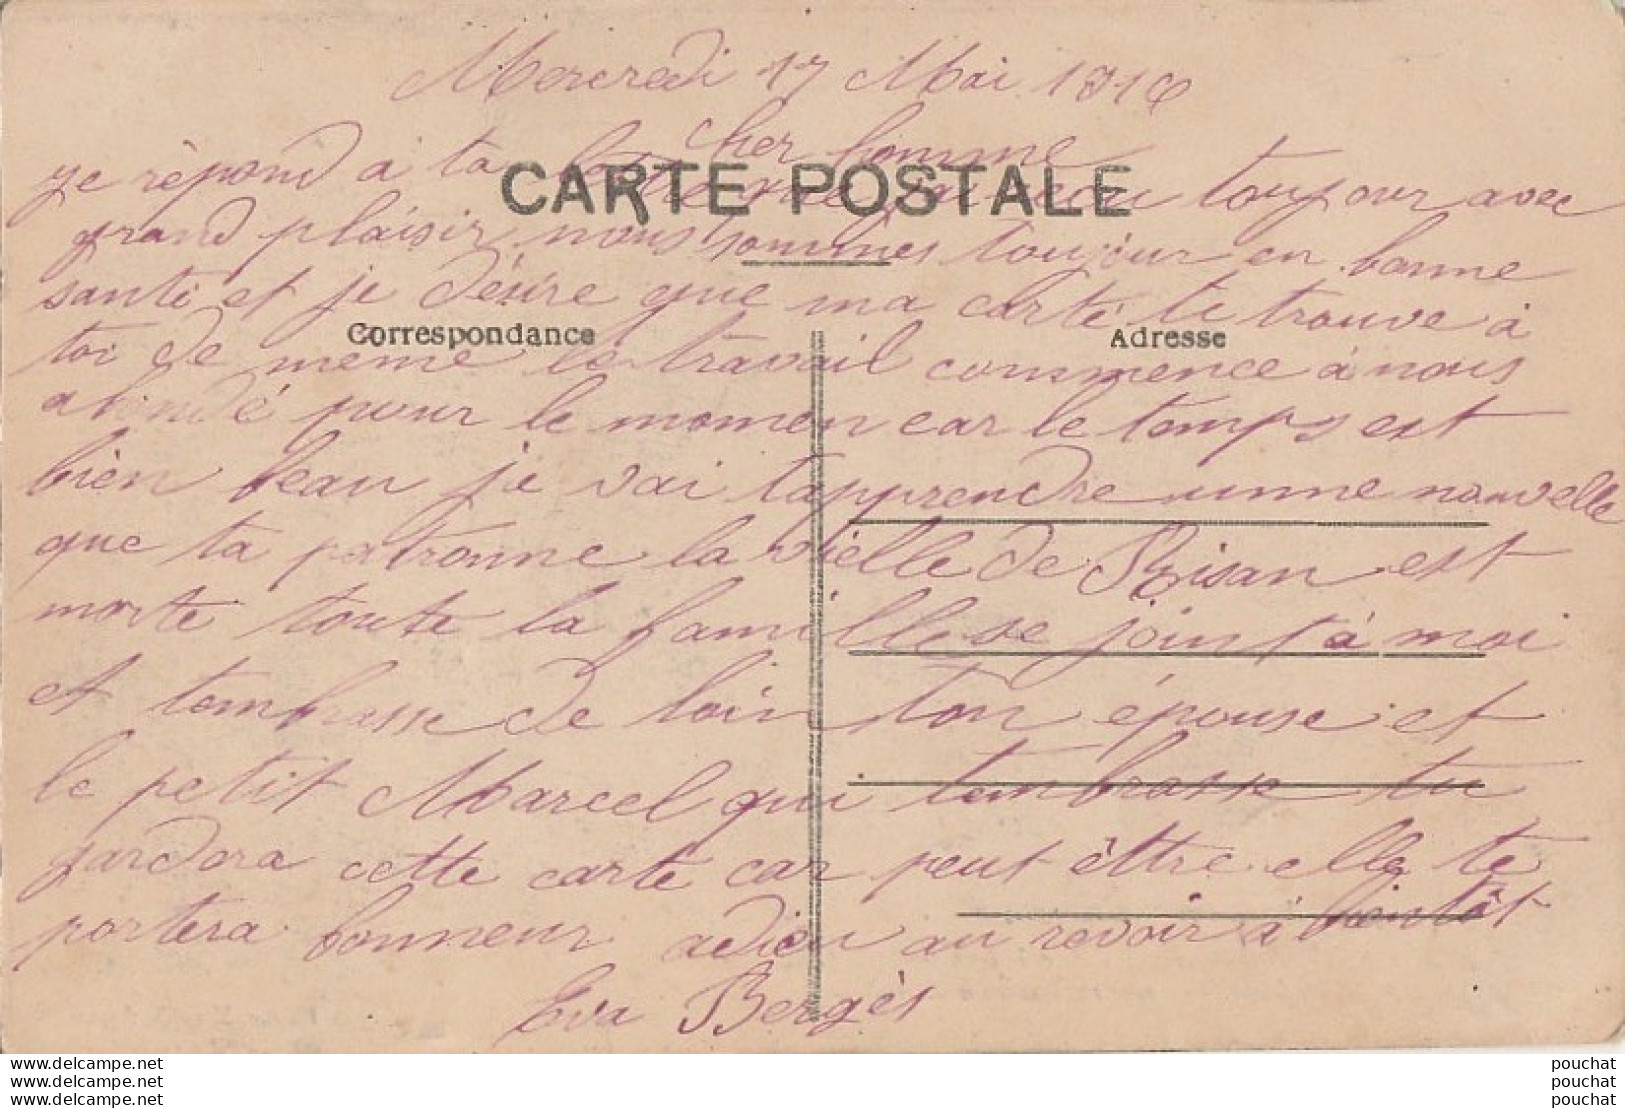 Mercredi 17 Mai 1916
cher homme
je répond a ta lettre que jai recu toujour avec
CARTE POSTALE
grand plaisir nous sommes toujour en bonne
santé et je désire que ma carte te trouve à
Correspondance
Adresse
toi de meme le travail commence à nous
abondé pour le momen car le temps est
bien beau je vai tapprendre unne nouvelle
que ta patronne la vielle de est
morte toute la famille se joint à moi
et tembrasse de loin ton épouse et
le petit Marcel qui tembrasse tu
gardera cette carte car peut êttre elle te
portera bonneur adieu au revoir à bientôt
Eva Bergès
www.delcampe.net
www.delcampe.net
www.delcampe.net
pouchat
pouchat
pouchat